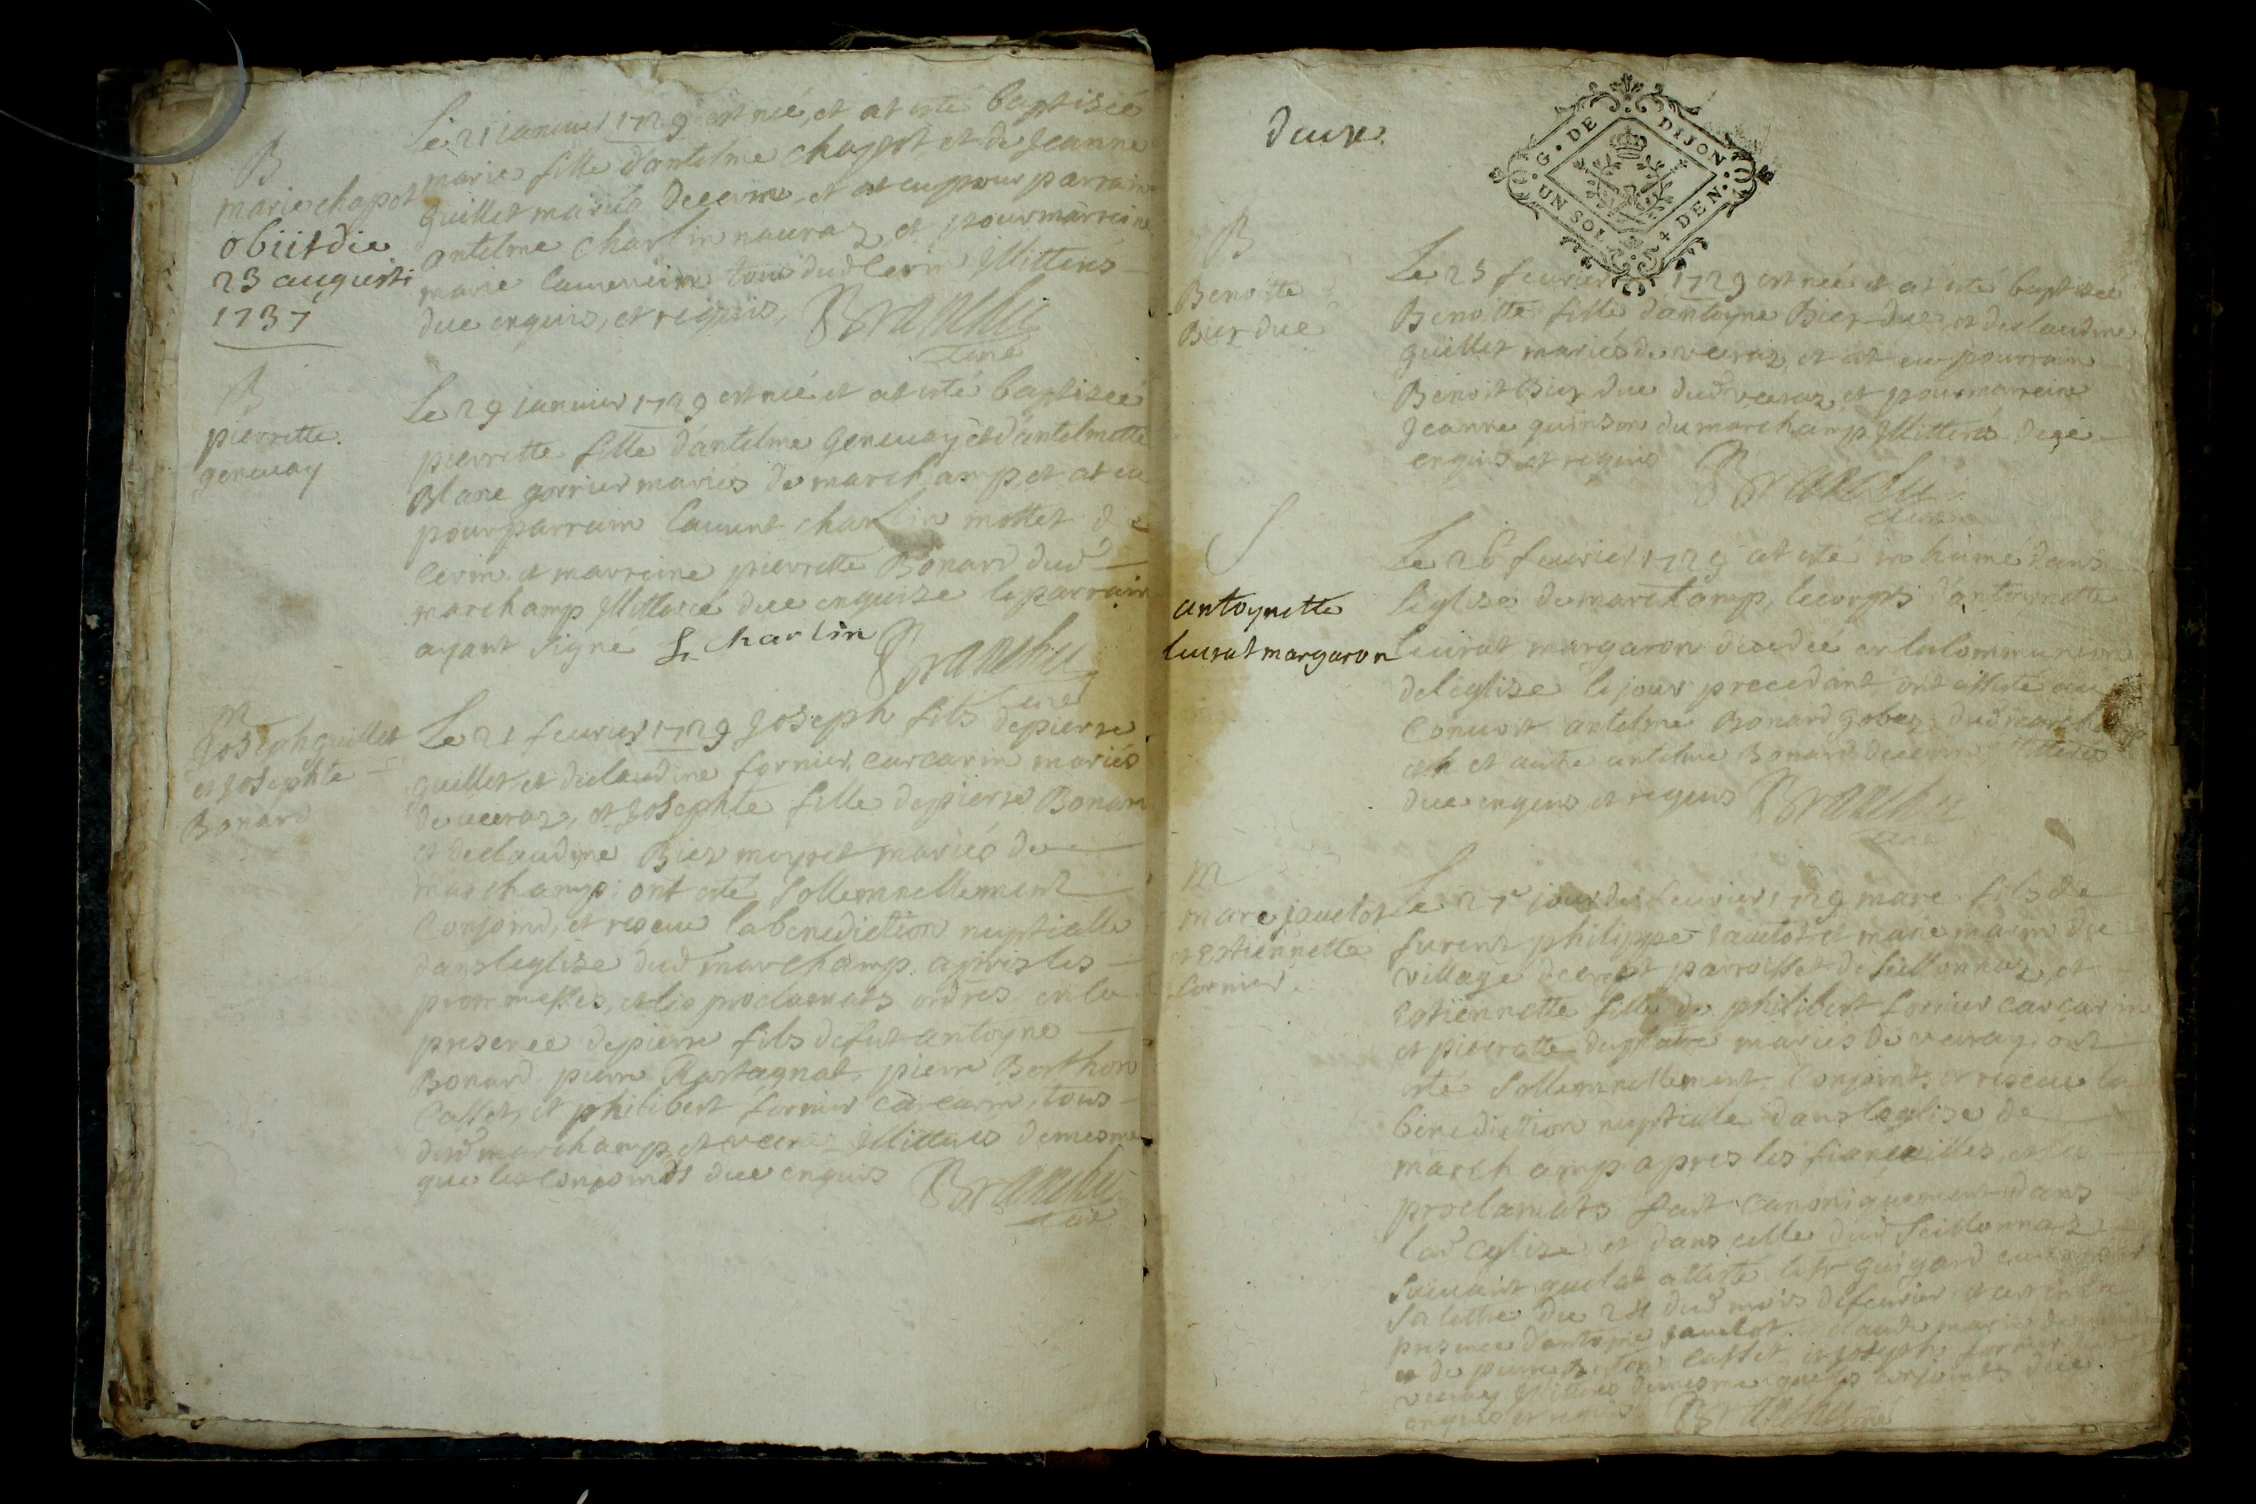 B
marie chapot
obiit die
23 augusti
1737
Le 21 ianuier 1729 est neé, et at esté baptisée
marie fille d'antelme chappot et de Jeanne
guillet mariés de cerin et at eu pour parrain
antelme charlin nauraz, et pour marreine
marie tous dud cerin Illitteres
due enquis, et requis, Branchu
curé
B
pierrette
geneuay
Le 29 ianuier 1729 est neé et at esté baptisée
pierrette fille d'antelme geneuay et d'antelmette
Blanc gorrier mariés de marchamp, et at eu
pour parrain laurent charlin mottet de
cerin et marreine pierrette Bonard dud
marchamp Illitterée due enquise le parrain
ayant signé L charlin Branchu
curé
M
Joseph guillet
et Josephte
Bonard
Le 21 feurier 1729 Joseph fils de pierre
guillet et de claudine fornier carcarin mariés
de veeraz, et Josephte fille de pierre Bonard
et de claudine Biez moyret mariés de
marchamp, ont esté sollemnellement
Conjoind, et receu la benediction nuptialle
dans leglise dud marchamp apres les
prommesses, et les proclamats ordres en la
presence de pierre fils de fut antoyne
Bonard pierre Rastagnat, pierre Berthon
Casset, et philibert fornier carcarin, tous
dud marchamp, et veeraz Illitteres de mesme
que les conjoinds due enquis Branchu
curé
deux
G. DE DIJON
UN SOL 4 DEN.
B
Benoitte
Biez due
Le 25 feurier 1729 est neé et at esté baptisée
Benoitte fille d'antoyne Biez due et de claudine
guillet mariés de veeraz, et at eu pour parrain
Benoit Biez due dud veeraz, et pour marreine
Jeanne quinson du marchamp Illitterés de ce
enquis et requis Branchu
curé
S
antoynette
leurat margaron
Le 26 feurier 1729 at esté inhumé dans
leglise de marchamp le corps d'antoynette
leurat margaron decedée en la communion
de leglise le jour precedant, ont assisté au
Conuoit antelme Bonard gobaz dud marchamp
et autre antelme Bonard de cerin Illitteres
due enquis et requis Branchu
curé
M
marc jauelot
et estiennette
fornier
Le 27e jour de feurier 1729 marc fils de
furent philippe Jauelot et marie marin du
village de parroisse de seillonnaz, et
Estiennette fille de philibert fornier carcarin
et pierrette duplatre mariés de veeraz, ont
esté sollemnellement Conjoint, et receu la
benediction nuptiale dans leglise de
marchamp apres les fiancailles, et les
proclamats fait canoniquement dans
lad eglise, et dans celle dud seillonnaz
suiuant quelat attesté le sr guigard curé
sa lettre du 24 dud mois de feurier et en la
presence d'antoyne Jauelot claude marin
et de pierre berton casset et joseph fornier
veeraz Illitteres de mesme que les conjoints due
enquis et requis Branchu curé